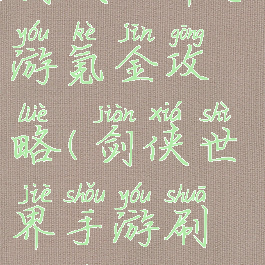 yóu kè jīn gōng
游氪金攻
lüè jiàn xiá shì
略(剑侠世
jiè shǒu yóu shuā
界手游刷